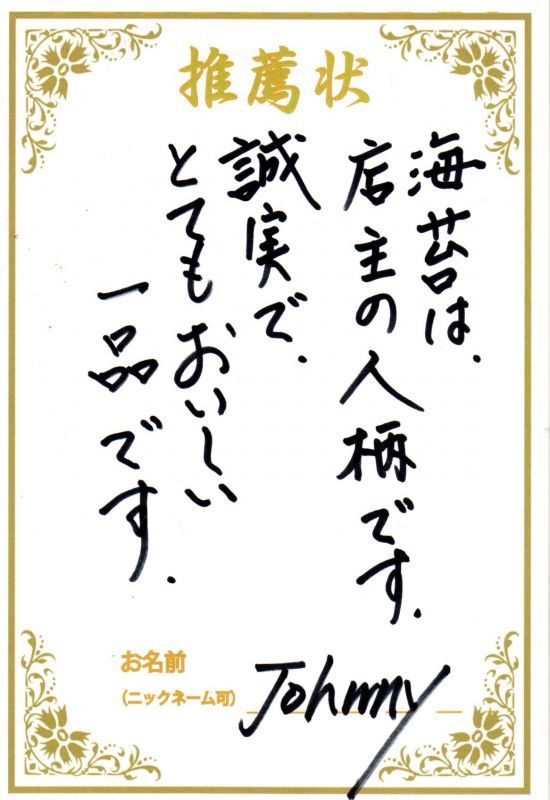 推薦状
海苔は、
店主の人柄です。
誠実で、
とてもおいしい
一品です。
お名前
(ニックネーム可)
Johnny